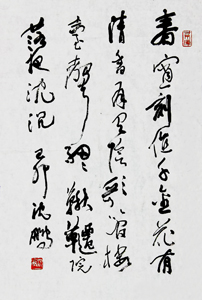 春宵刻值千金花有
清香月有阴歌管楼
台声细细秋千院
落夜沉沉 己卯 沈鹏